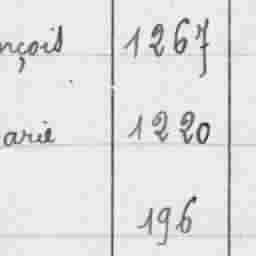 nçois 1267
arie 1220
196